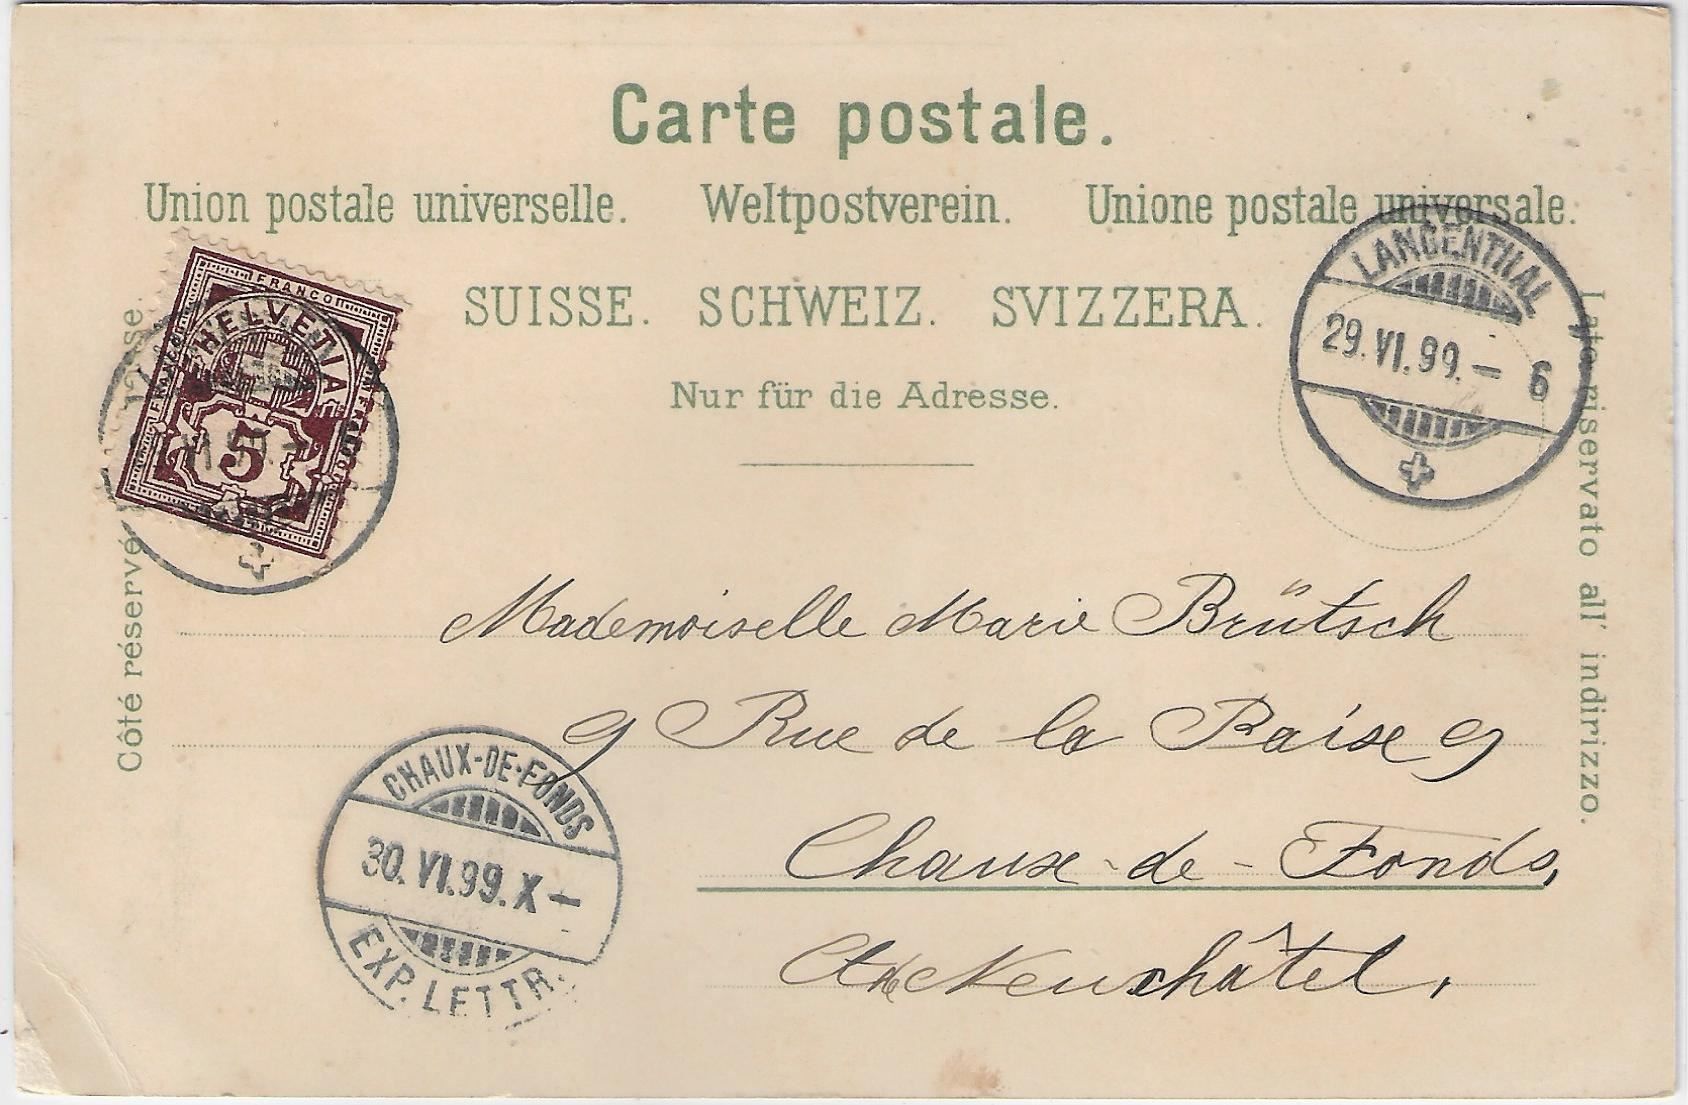 Carte postale.
Union postale universelle. Weltpostverein. Unione postale universale.
SUISSE. SCHWEIZ. SVIZZERA.
Nur für die Adresse.
Côté réservé
Lato riservato all' indirizzo.
FRANCO
FRANCO
FRANCO
HELVETIA
5
LANGENTHAL
29.VI.99.– 6
Mademoiselle Marie Brütsch
9 Rue de la Baise 9
Chaux-de-Fonds,
Neuchâtel.
CHAUX-DE-FONDS
30.VI.99.X–
EXP. LETTR.